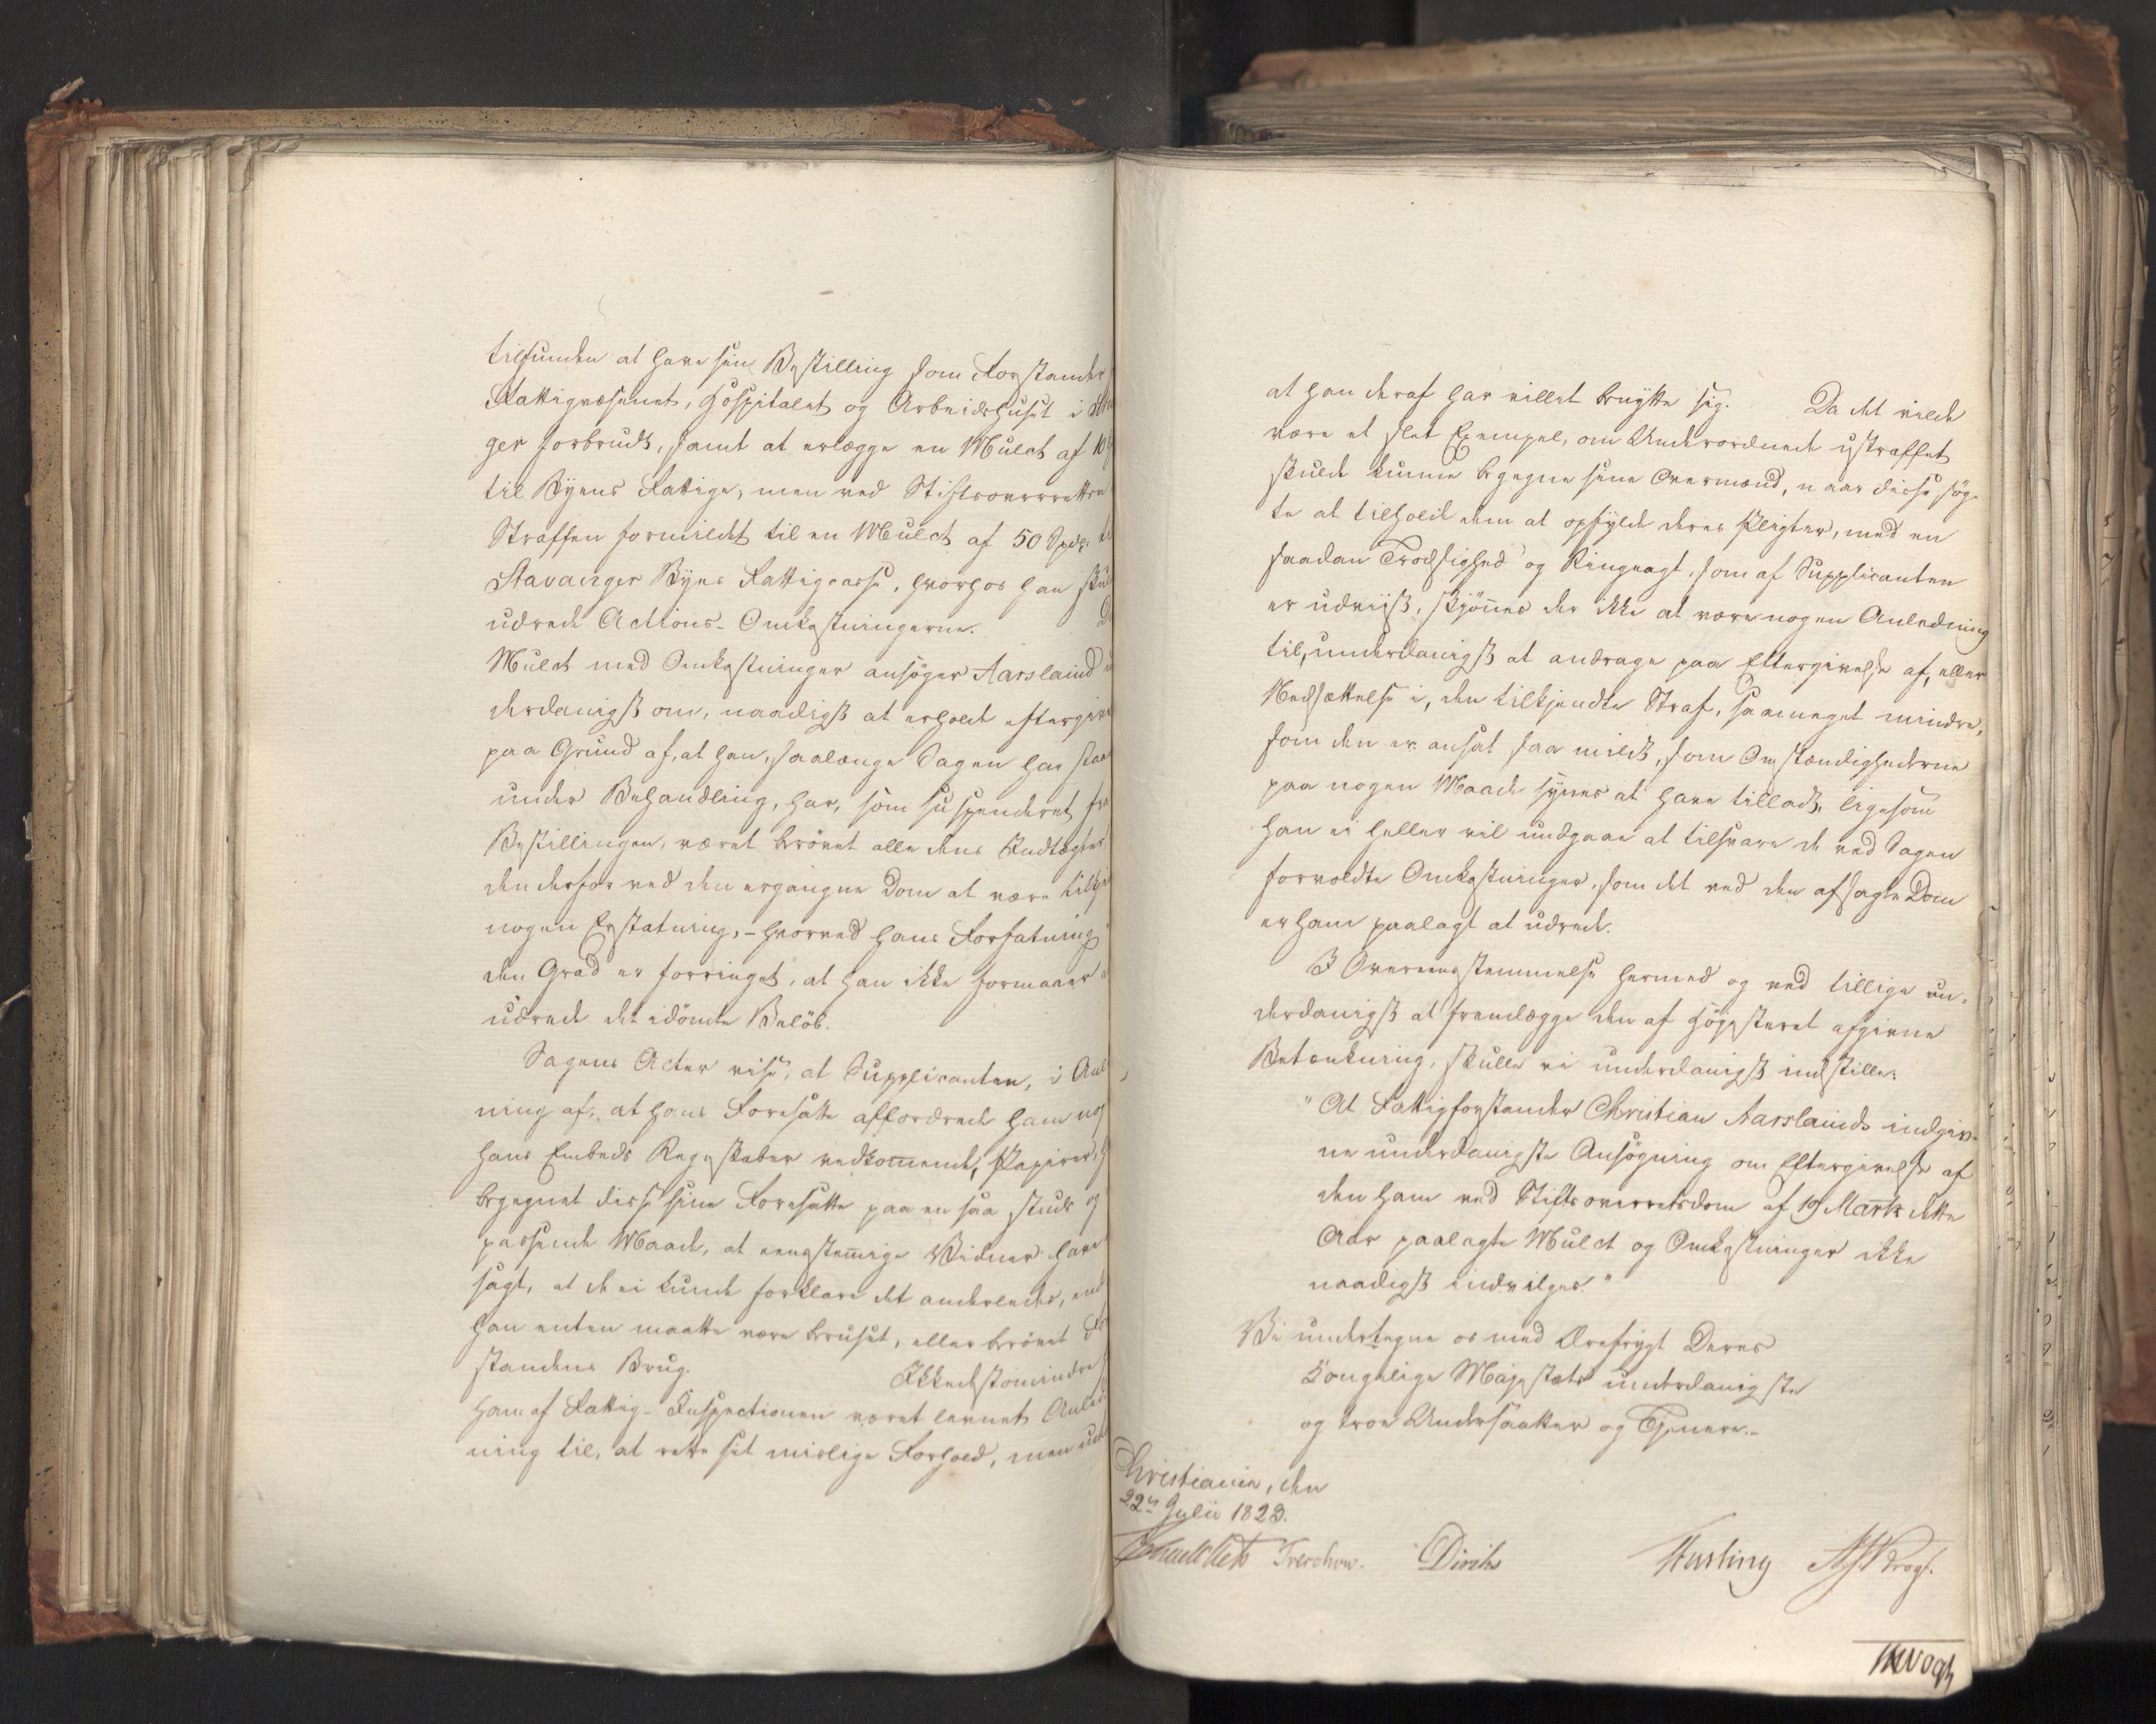 tilfunden at have sin Bestilling som Forstander
Fattigvæsenet, Hospitalet og Arbeidshuset i
ger forbrudt, samt at erlægge en Mulct af
til Byens Fattige, men ved Stiftsoverretten
Straffen formildet til en Mulct af 50 Spdlr.
Stavanger Byes Fattigcasse, hvorhos han
udrede Actions-Omkostningerne.
Mulct med Omkostninger ansöger Aarsland
derdanigst om, naadigst at erholde eftergivet
paa Grund af, at han, saalænge Sagen har
under Behandling, har, som suspenderet fra
Bestillingen, været berövet alle dens Indtægter
den derfor ved den ergangne Dom at være
nogen Erstatning, – hvorved hans Forfatning
den Grad er forringet, at han ikke formaaer
udrede det idömte Belöb.
Sagens Acter vise, at Supplicanten, i Anled
ning af, at hans Foresatte affordrede ham
hans Embeds Regnskaber vedkommende, Papirer,
begegnet disse sine Foresatte paa en saa studs og
passende Maade, at eenstemmige Vidner have
sagt, at de ei kunde forklare det anderledes, end
han enten maatte være beruset, eller berövet
standens Brug. Ikkedestomindre
ham af Fattig-Inspectionen været levnet Anled
ning til, at rette sit mislige Forhold, men
at han deraf har villet benytte sig. Da det vilde
være et slet Exempel, om Underordnede ustraffet
skulde kunne begegne sine Overmænd, naar disse sög
te at tilholde dem at opfylde deres Pligter, med en
saadan Trodsighed og Ringeagt, som af Supplicanten
er udviist, skjönnes der ikke at være nogen Anledning
til, underdanigst at andrage paa Eftergivelse af, eller
Nedsættelse i, den tilkjendte Straf, saameget mindre,
som den er ansat saa mildt, som Omstændighederne
paa nogen Maade synes at have tilladt, ligesom
han ei heller vil undgaae at tilsvare de ved Sagen
forvoldte Omkostninger, som det ved den afsagte Dom
er ham paalagt at udrede.
I Overeensstemmelse hermed og ved tillige un-
derdanigst at fremlægge den af Höjesteret afgivne
Betænkning, skulle vi underdanigst indstille:
"At Fattigforstander Christian Aarslands indgiv-
ne underdanigste Ansögning om Eftergivelse af
den ham ved Stiftsoverretsdom af 19 Marts dette
Aar paalagte Mulct og Omkostninger ikke
naadigst indvilges."
Vi undertegne os med Ærefrygt Deres
Kongelige Majestæts underdanigste
og troe Undersaatter og Tjenere.-
Christiania, den
22n Julii 1823.
Treschow. Diriks Fasting Krogh.